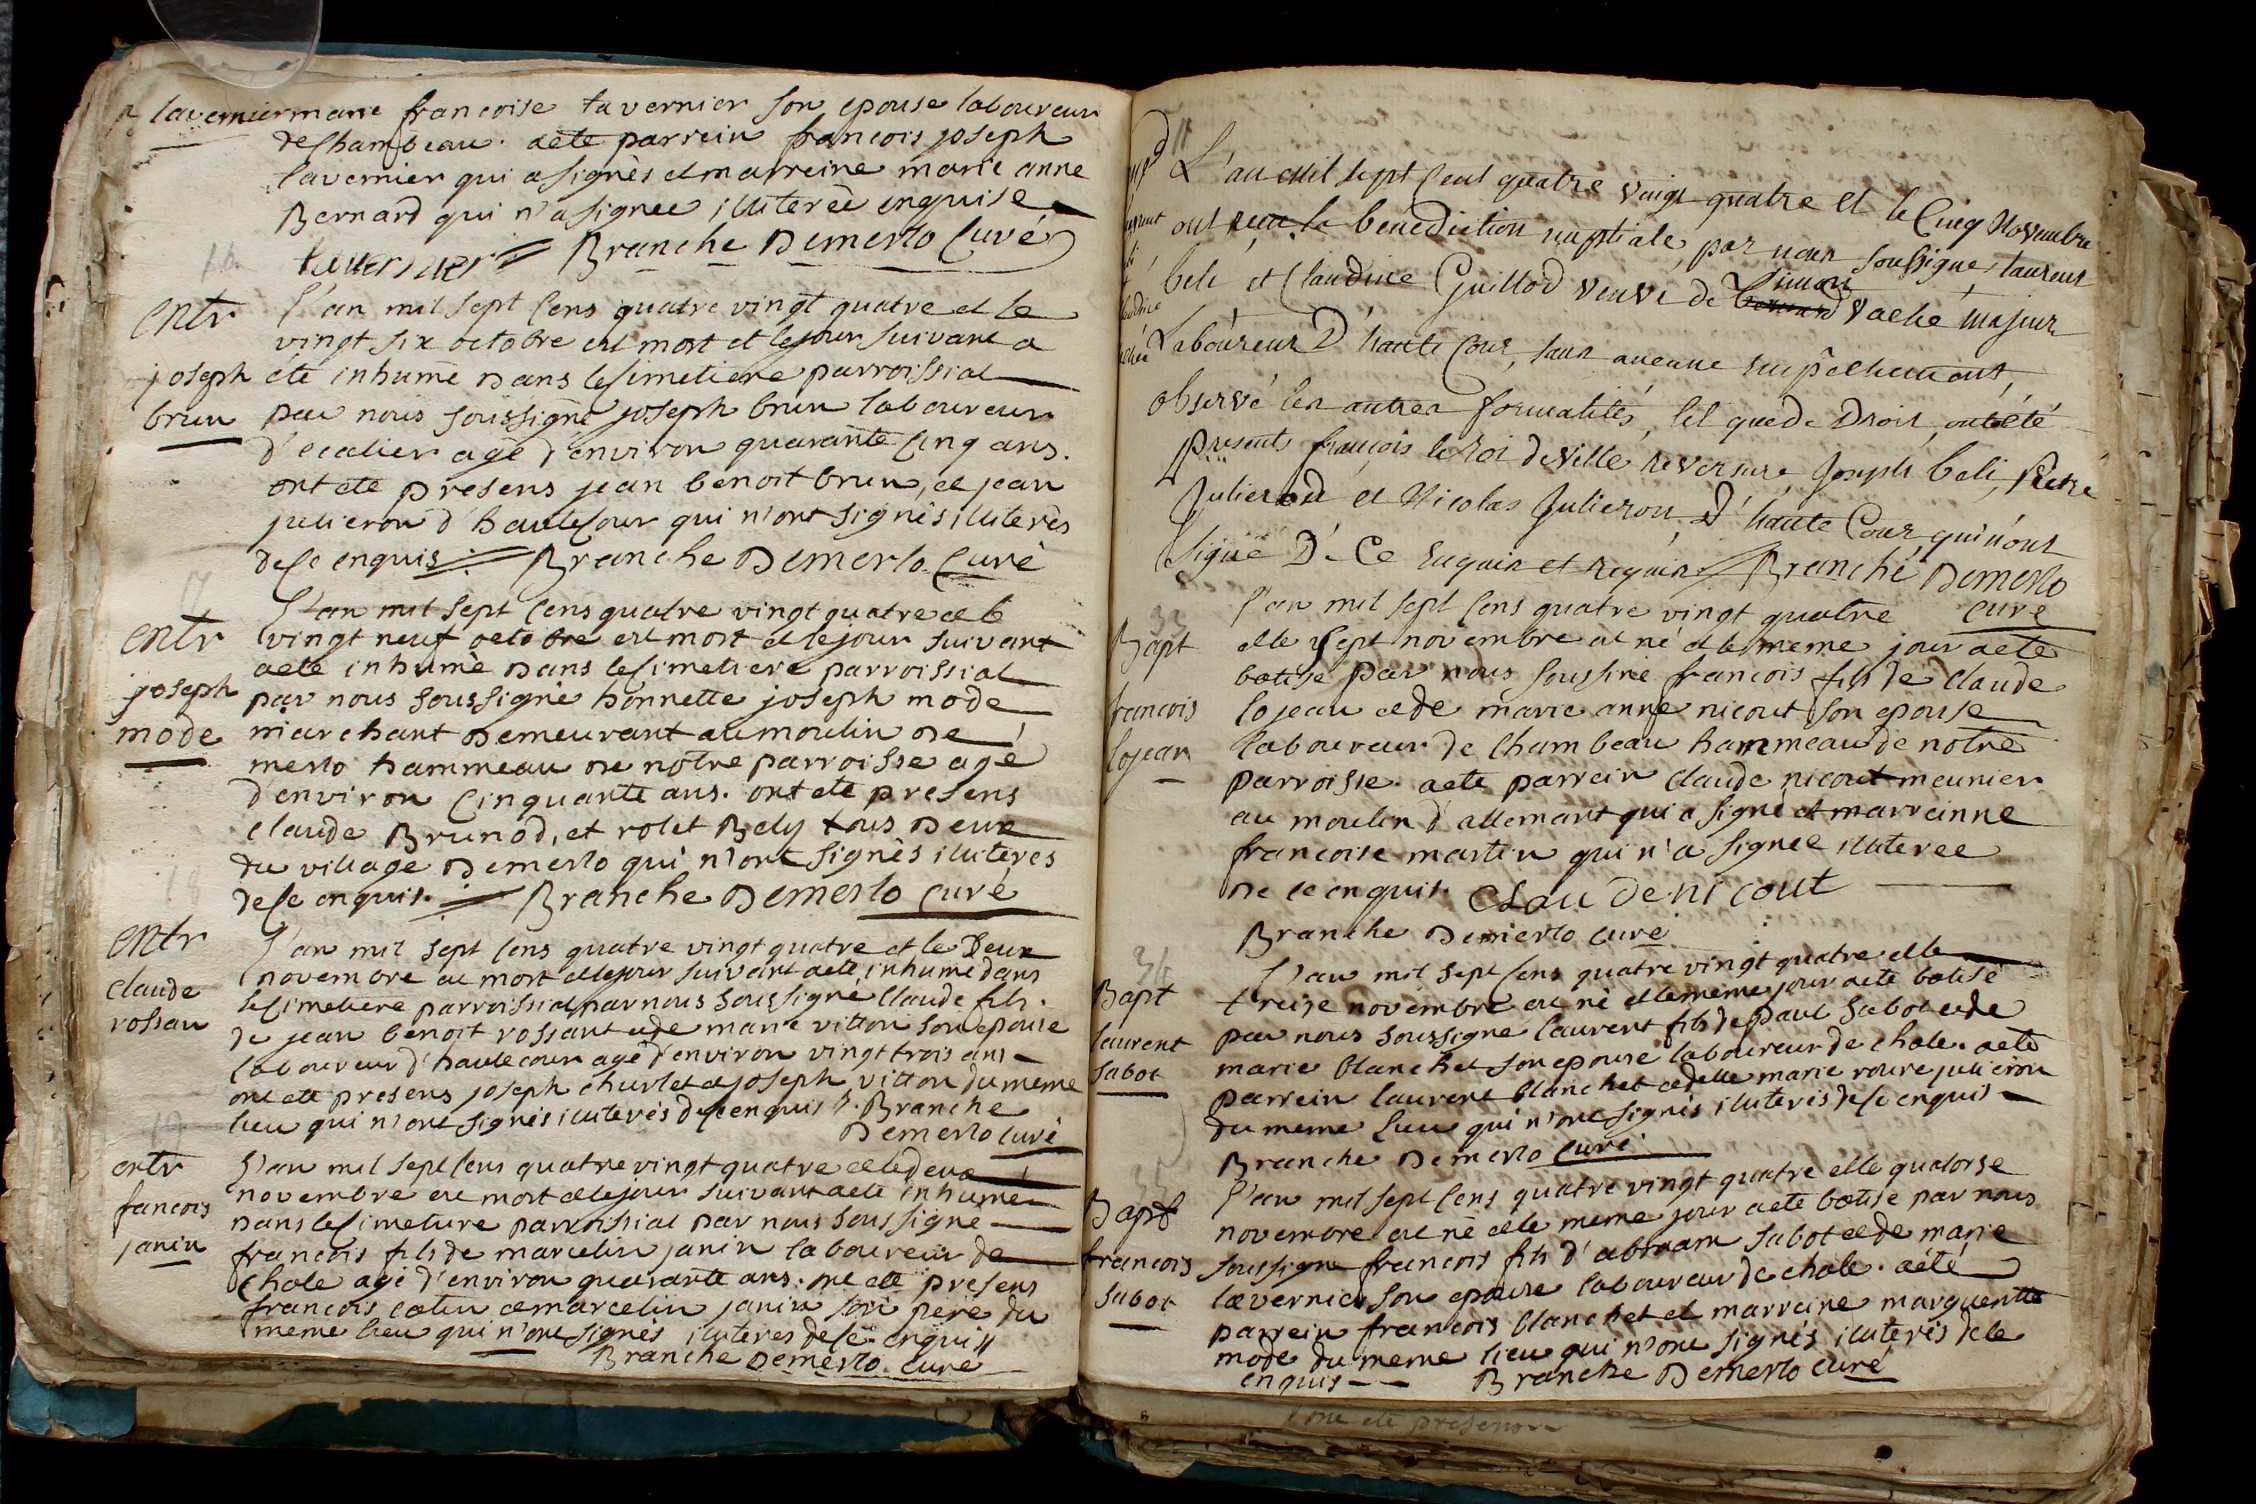 tavernier marie francoise tavernier son epouse laboureur
de Chambeau. aete parrein francois joseph
tavernier qui a signès et marreine marie anne
Bernard qui n'a signee illiterèe enquise
tavernier Branche Demerlo Curé
16
entr
joseph
brun
L'an mil sept Cens quatre vingt quatre et le
vingt six octobre est mort et le jour suivant a
ete inhumè Dans le Simetiere parroissial
par nous soussignè joseph brun laboureur
d'ecalier agè d'environ quarante Cinq ans.
ont ete presens jean benoit brun, et jean
julieron d'hauteCour qui n'ont signès illiterès
de Ce enquis Branche Demerlo Curè
17
entr
joseph
mode
L'an mil sept Cens quatre vingt quatre et le
vingt neuf octobre est mort et le jour suivant
aete inhumè Dans le Simetiere parroissial
par nous soussigne honnette joseph mode
marchant Demeurant au moulin De
merlo hammeau De nôtre parroisse agé
d'environ Cinquante ans. ont ete presens
claude Brunod, et rolet Bely tous Deux
du village Demerlo qui n'ont signès illiteres
de Ce enquis. Branche Demerlo Curé
18
entr
claude
rossan
L'an mil sept Cens quatre vingt quatre et le Deux
novembre est mort et le jour suivant aete inhumè dans
le Simetiere parroissial par nous soussigné Claude fils
de jean benoit rossant et de marie vitton son epouse
laboureur d'haute cour agè d'environ vingt trois ans
ont ete presens joseph churlet et joseph vitton du meme
lieu qui n'ont signés illiterés de Ce enquis. Branche
Demerlo Curè
19
entr
fancois
janin
L'an mil sept Cens quatre vingt quatre et le deux
novembre est mort et le jour suivant aete inhumè
Dans le Simetiere parroissial par nous soussigné
francois fils de marcelin janin laboureur de
Chole agé d'environ quarante ans. ont ete presens
francois catin et marcelin janin son pere du
meme lieu qui n'ont signés illiteres de Ce enquis
Branche Demerlo Cure
11
L'an mil sept Cent quatre vingt quatre et le Cinq Novembre
ont recu la benediction nuptiale, par nous soussigné, laurent
beli et Claudine Guillod veuve de Simon vaché majeur
Laboureur D'haute Cour, sans aucune empêchement,
observé les autres formalités, tel que de Droit, ont été
Presents françois le Roi de Ville reversure, Joseph beli, Pierre
Julierod et Nicolas Julieron D'haute Cour, qui n'ont
Signé De Ce Enquis et Requis Branche Demerlo
Cure
33
Bapt
francois
lojean
L'an mil sept Cens quatre vingt quatre
et le sept novembre est né et le meme jour aete
batise par nous soussiné francois fils de claude
lojean et de marie anne nicout son epouse
laboureur de Chambeau hammeau de notre
parroisse. aete parrein claude nicout meunier
au moulin d'allemant qui a signè et marreinne
francoise martin qui n'a signee illiteree
De ce enquis. Claude nicout
Branche Demerlo curé
34
Bapt
laurent
sabot
L'an mil sept Cens quatre vingt quatre et le
treise novembre est né et le meme jour aete batisé
par nous soussigne laurent fils de paul sabot et de
marie blanchet son epouse laboureur de chole. aete
parrein laurent blanchet et delle marie rore julieron
du meme lieu qui n'ont signés illiterés de Ce enquis
Branche Demerlo Curé
35
Bapt
francois
sabot
L'an mil sept Cens quatre vingt quatre et le quatorse
novembre est né et le meme jour aete batisé par nous
soussigne francois fils d'abraam sabot et de marie
tavernier son epouse laboureur de chole. aété
parrein francois blanchet et marreine margueritte
mode du meme lieu qui n'ont signés illiterés de Ce
enquis Branche Demerlo Curé
ont ete presens